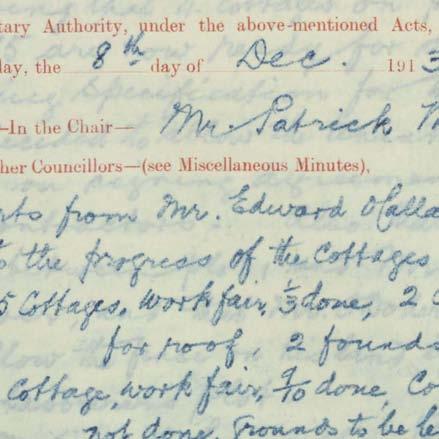 tary Authority, under the above-mentioned Acts,
day, the 8th day of Dec. 1913
—In the Chair— Mr. Patrick
her Councillors—(see Miscellaneous Minutes),
rts from Mr. Edward O'Calla
to the progress of the Cottages
5 Cottages, work fair, 1/3 done, 2
for roof, 2 founda
Cottage, work fair, 9/10 done, Co
not done, grounds to be le